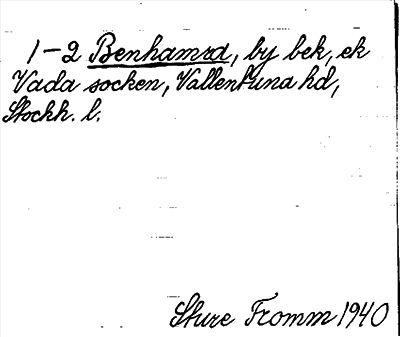 1-2 Benhamra, by bek, ek
Vada socken, Vallentuna hd,
Stockh. l.
Sture Fromm 1940